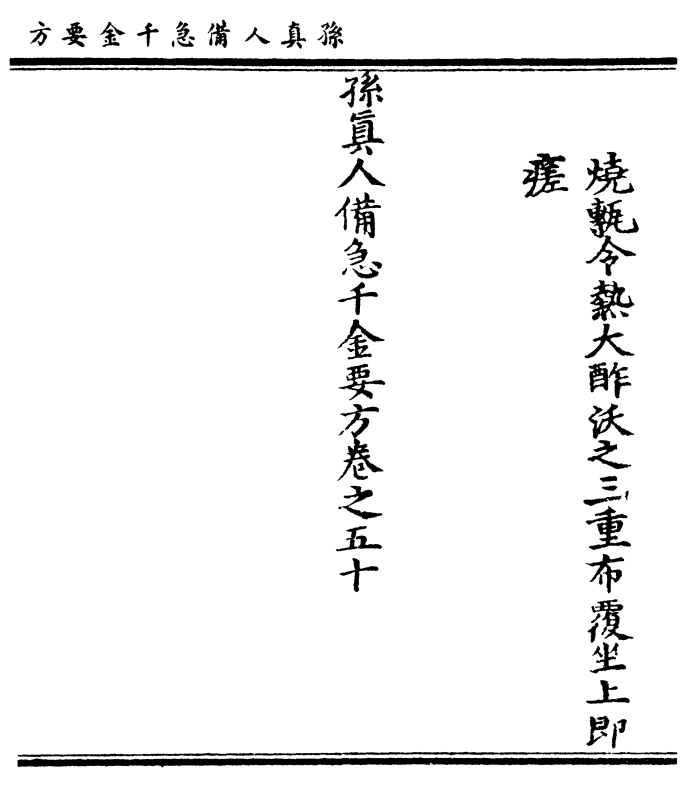 孫真人備急千金要方
燒甎令熱大酢沃之三重布覆坐上即
瘥
孫眞人備急千金要方卷之五十